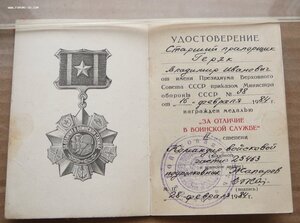 УДОСТОВЕРЕНИЕ
Старший прапорщик
Геряк
Владимир Иванович
от имени Президиума Верховного
Совета СССР приказом Министра
обороны СССР № 38
от 16 февраля 1984 г.
награжден медалью
"ЗА ОТЛИЧИЕ
В ВОИНСКОЙ СЛУЖБЕ"
II степени
Командир войсковой
части 23463
подполковник Жапаров
февраля 1984 г.